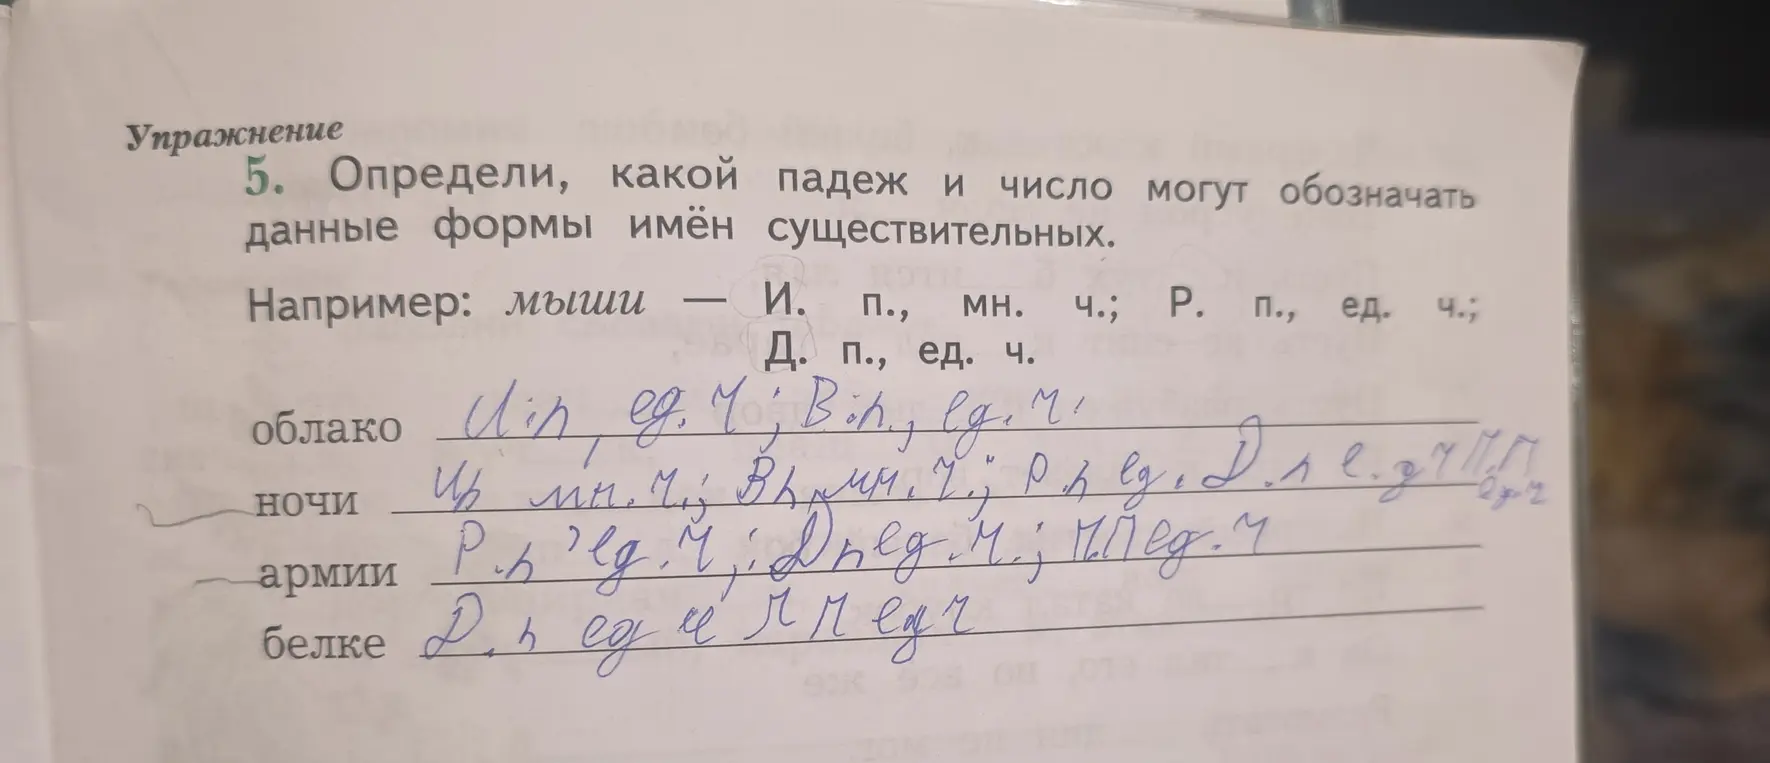 Упражнение
5. Определи, какой падеж и число могут обозначать
данные формы имён существительных.
Например: мыши — И. п., мн. ч.; Р. п., ед. ч.;
Д. п., ед. ч.
облако И.п, ед. ч; В.п., ед. ч.
ночи Ип мн. ч.; Вп, мн. ч.; Р.п ед. Д.п е.д ч П.П
ед ч
армии Р.п, ед. ч; Дп ед. ч.; П.П ед. ч
белке Д.п ед ч П П ед ч